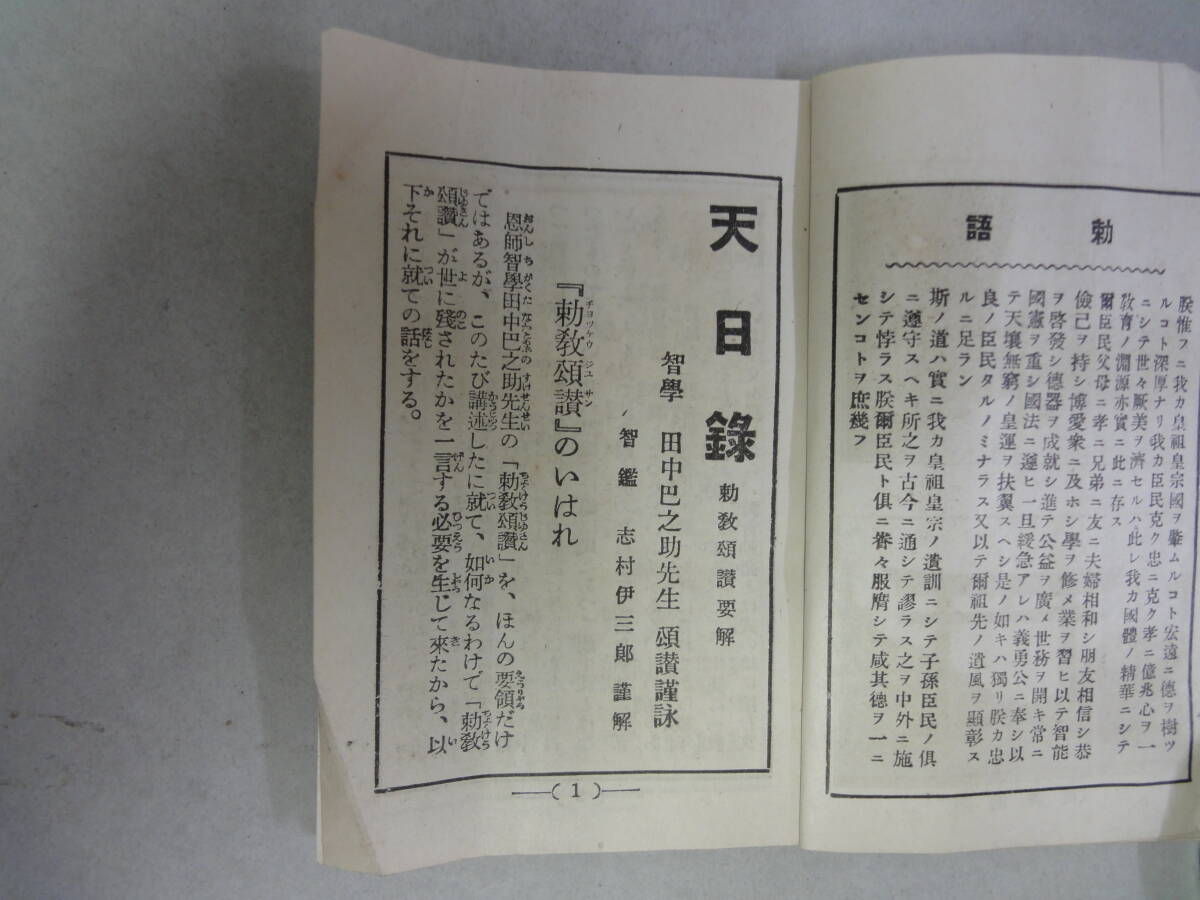 勅語
朕惟フニ我カ皇祖皇宗國ヲ肇ムルコト宏遠ニ德ヲ樹ツ
ルコト深厚ナリ我カ臣民克ク忠ニ克ク孝ニ億兆心ヲ一
ニシテ世々厥美ヲ濟セルハ此レ我カ國體ノ精華ニシテ
敎育ノ淵源亦實ニ此ニ存ス
爾臣民父母ニ孝ニ兄弟ニ友ニ夫婦相和シ朋友相信シ恭
儉己ヲ持シ博愛衆ニ及ホシ學ヲ修メ業ヲ習ヒ以テ智能
ヲ啓發シ德器ヲ成就シ進テ公益ヲ廣メ世務ヲ開キ常ニ
國憲ヲ重シ國法ニ遵ヒ一旦緩急アレハ義勇公ニ奉シ以
テ天壤無窮ノ皇運ヲ扶翼スヘシ是ノ如キハ獨リ朕カ忠
良ノ臣民タルノミナラス又以テ爾祖先ノ遺風ヲ顯彰ス
ルニ足ラン
斯ノ道ハ實ニ我カ皇祖皇宗ノ遺訓ニシテ子孫臣民ノ俱
ニ遵守スヘキ所之ヲ古今ニ通シテ謬ラス之ヲ中外ニ施
シテ悖ラス朕爾臣民ト俱ニ眷々服膺シテ咸其德ヲ一ニ
センコトヲ庶幾フ
天日錄 勅敎頌讃要解
智學 田中巴之助先生 頌讃謹詠
智鑑 志村伊三郞 謹解
『勅敎頌讃』のいはれ
恩師智學田中巴之助先生の「勅敎頌讃」を、ほんの要領だけ
ではあるが、このたび講述したに就て、如何なるわけで「勅敎
頌讃」が世に殘されたかを一言する必要を生じて來たから、以
下それに就ての話をする。
(1)